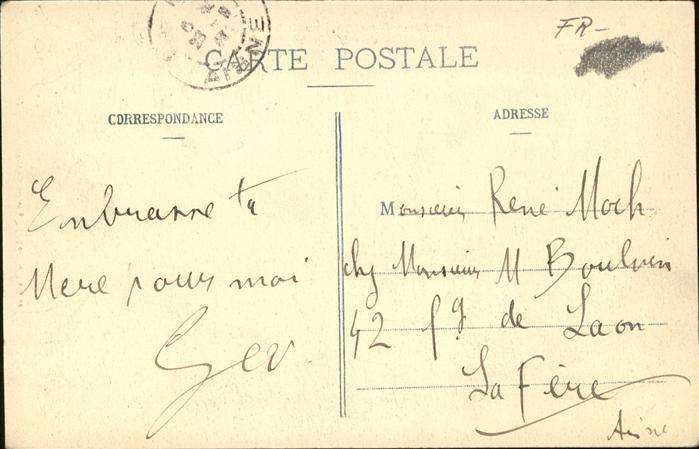 AISNE
FR-
CARTE POSTALE
CORRESPONDANCE
ADRESSE
Embrasse ta
Mere pour moi
Monsieur René Moch
chz Monsieur M
42 fg de Laon
La Fère
Aisne